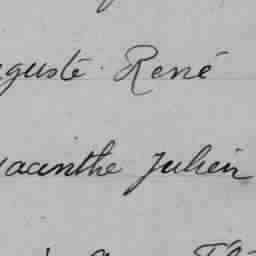 guste René
acinthe Julien